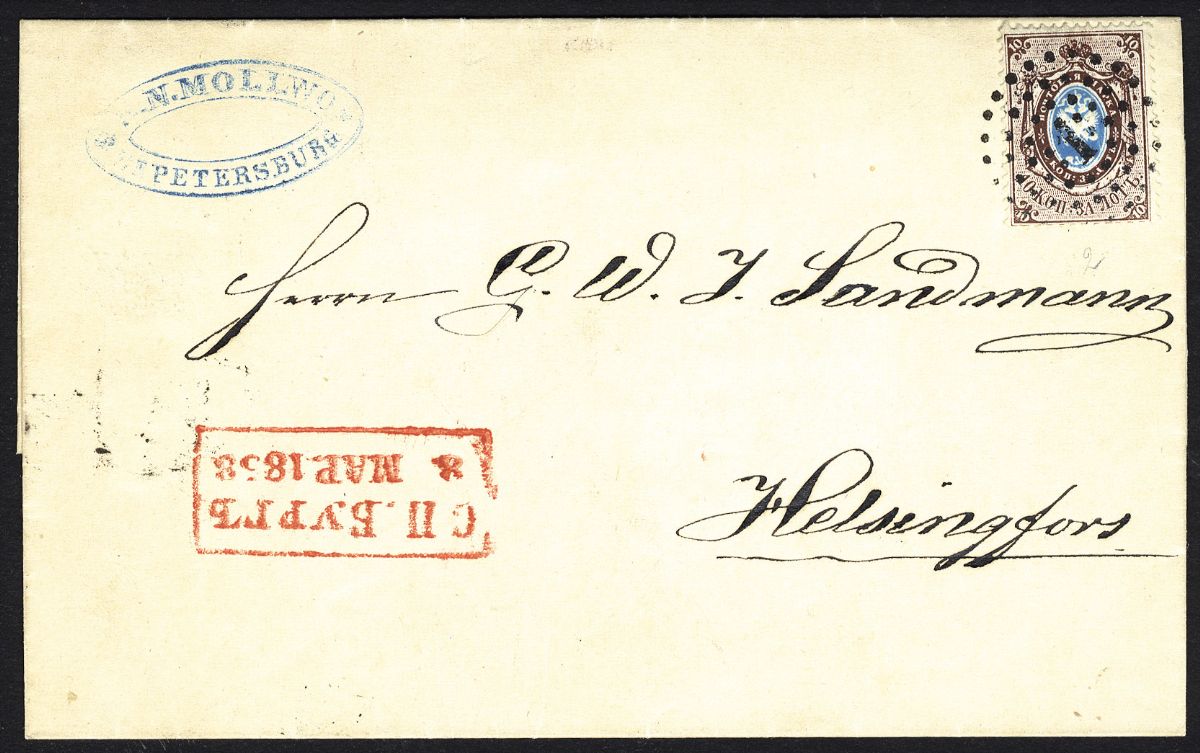 N. MOLLWO
ST PETERSBURG
10 10
ПОЧТОВАЯ МАРКА
10 КОП: ЗА ЛОТЪ.
10 10
1
2
Herrn G. W. J. Sandmann
Helsingfors
С.П.БУРГЪ
8 МАР.1858